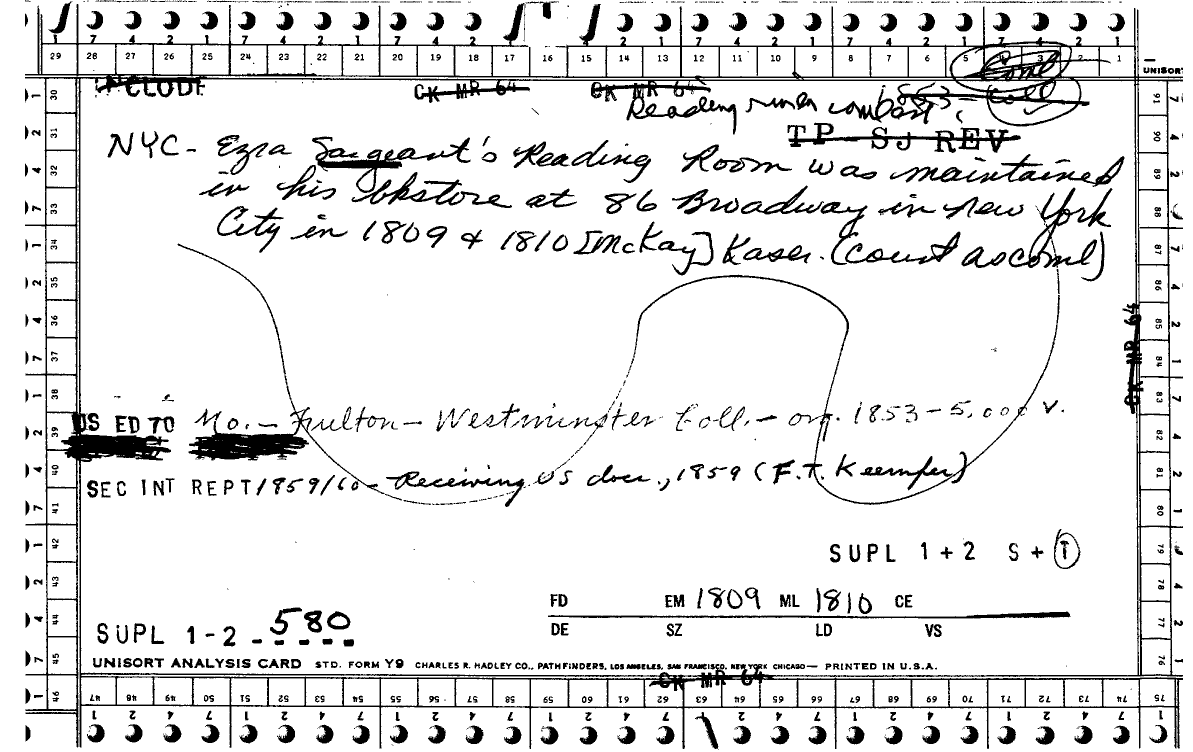 7 4 2 1 7 4 2 1 7 4 2 1 7 4 2 1 7 4 2 1 7 4 2 1
29 28 27 26 25 24 23 22 21 20 19 18 17 16 15 14 13 12 11 10 9 8 7 6 5 4 3 2 1
UNISORT
INCLUDE CK MR 64 CK MR 64 1853- Coll
Reading room
TP SJ REV
NYC- Ezra Sargeant's Reading Room was maintained
in his bkstore at 86 Broadway in New York
City in 1809 & 1810 [McKay] Kaser. (count as coml)
CK MR 64
US ED 70 Mo.- Fulton- Westminster Coll.- org. 1853-5,000 v.
SEC INT REPT/1859/60- Receiving US docs., 1859 (F.T. Keemper)
SUPL 1+2 S+T
FD EM 1809 ML 1810 CE
DE SZ LD VS
SUPL 1-2 - 580
UNISORT ANALYSIS CARD STD. FORM Y9 CHARLES R. HADLEY CO., PATHFINDERS, LOS ANGELES, SAN FRANCISCO, NEW YORK CHICAGO— PRINTED IN U.S.A.
CK MR 64
47 48 49 50 51 52 53 54 55 56 57 58 59 60 61 62 63 64 65 66 67 68 69 70 71 72 73 74 75